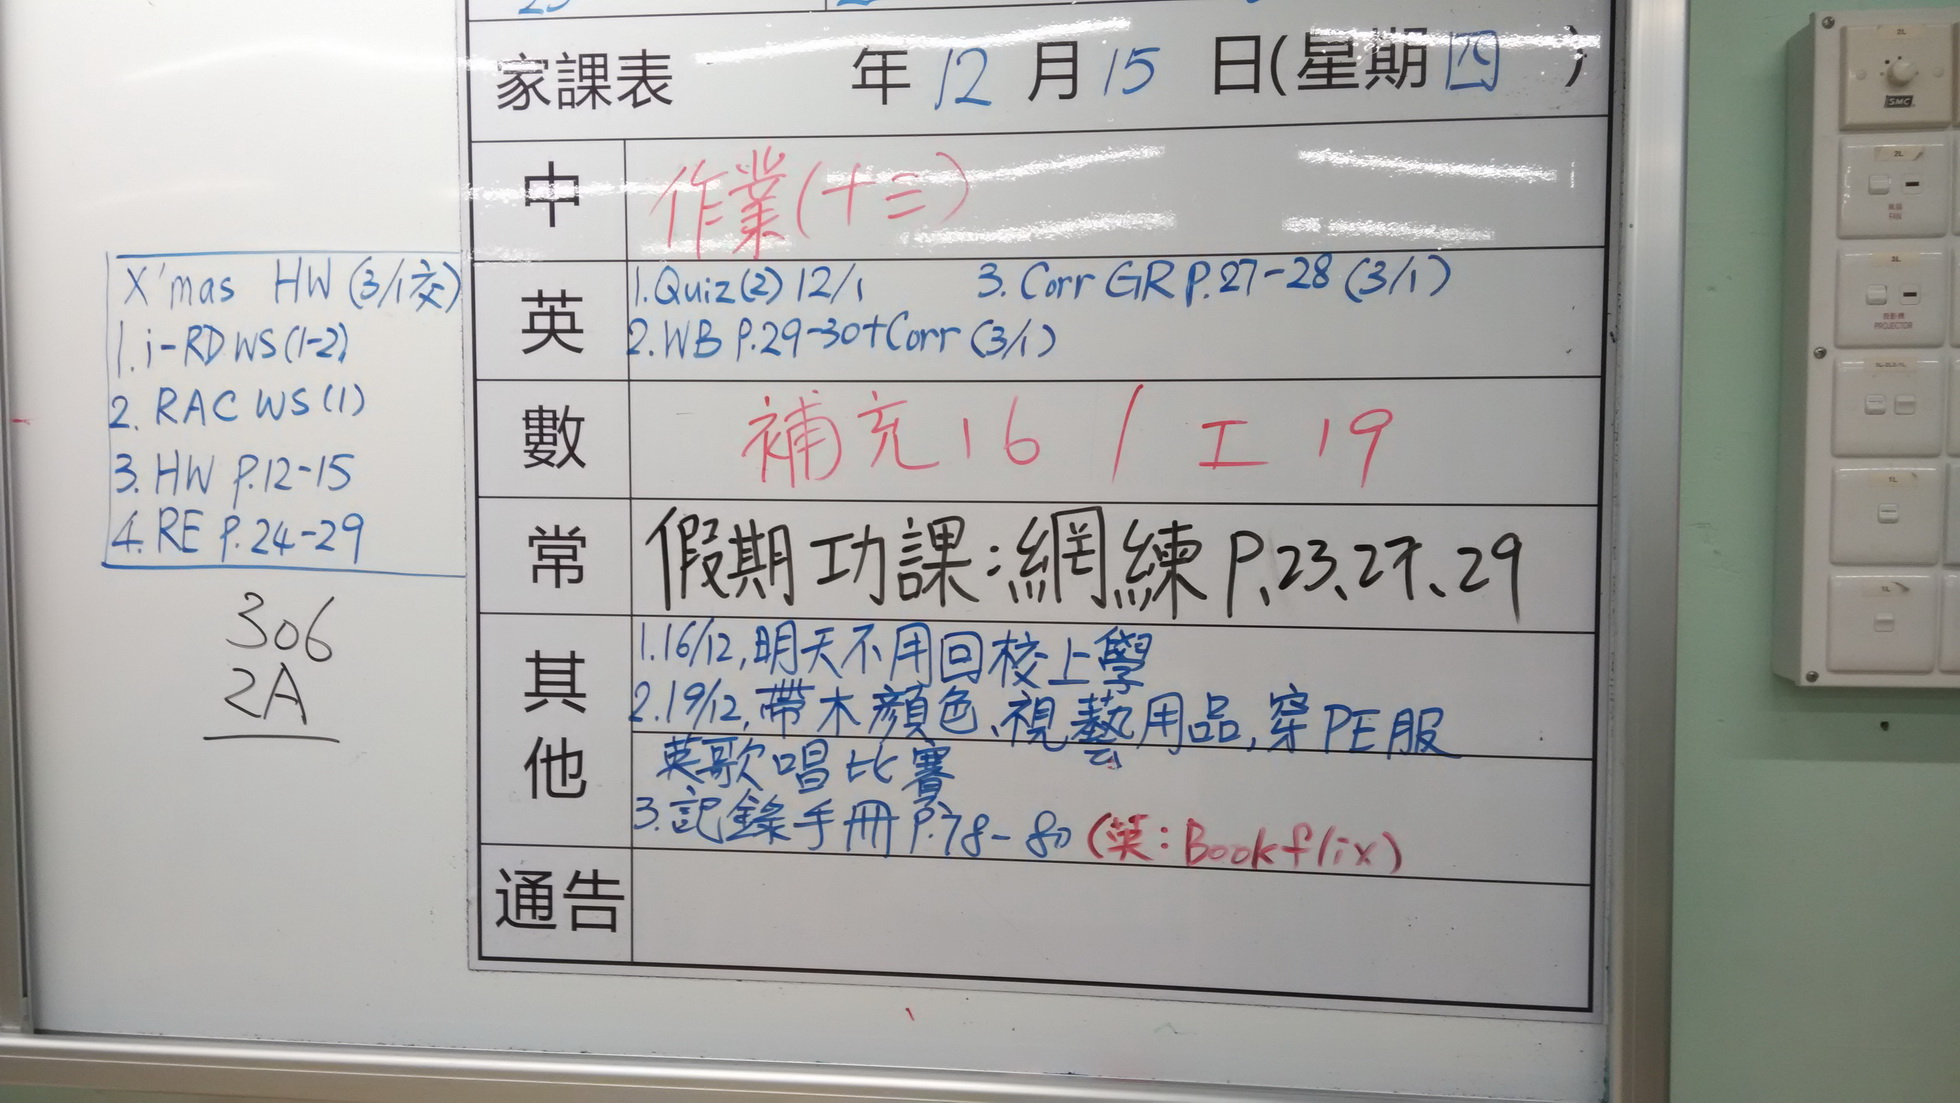 家課表 年 12 月 15 日(星期四 )
中 作業(十三)
英 1.Quiz(2) 12/1 3. Corr GR P.27-28 (3/1)
2. WB P.29-30+Corr (3/1)
數 補充16 / 工 19
常 假期功課:網練 P.23、27、29
其他 1.16/12,明天不用回校上學
2.19/12,帶木顏色、視藝用品,穿PE服
英歌唱比賽
3.記錄手冊 P.78-80 (英:Bookflix)
通告
X'mas HW (3/1交)
1. i-RD WS (1-2)
2. RAC WS (1)
3. HW P.12-15
4. RE P.24-29
306
2A
2L
SMC
2L
2L
PROJECTOR
1L
1L